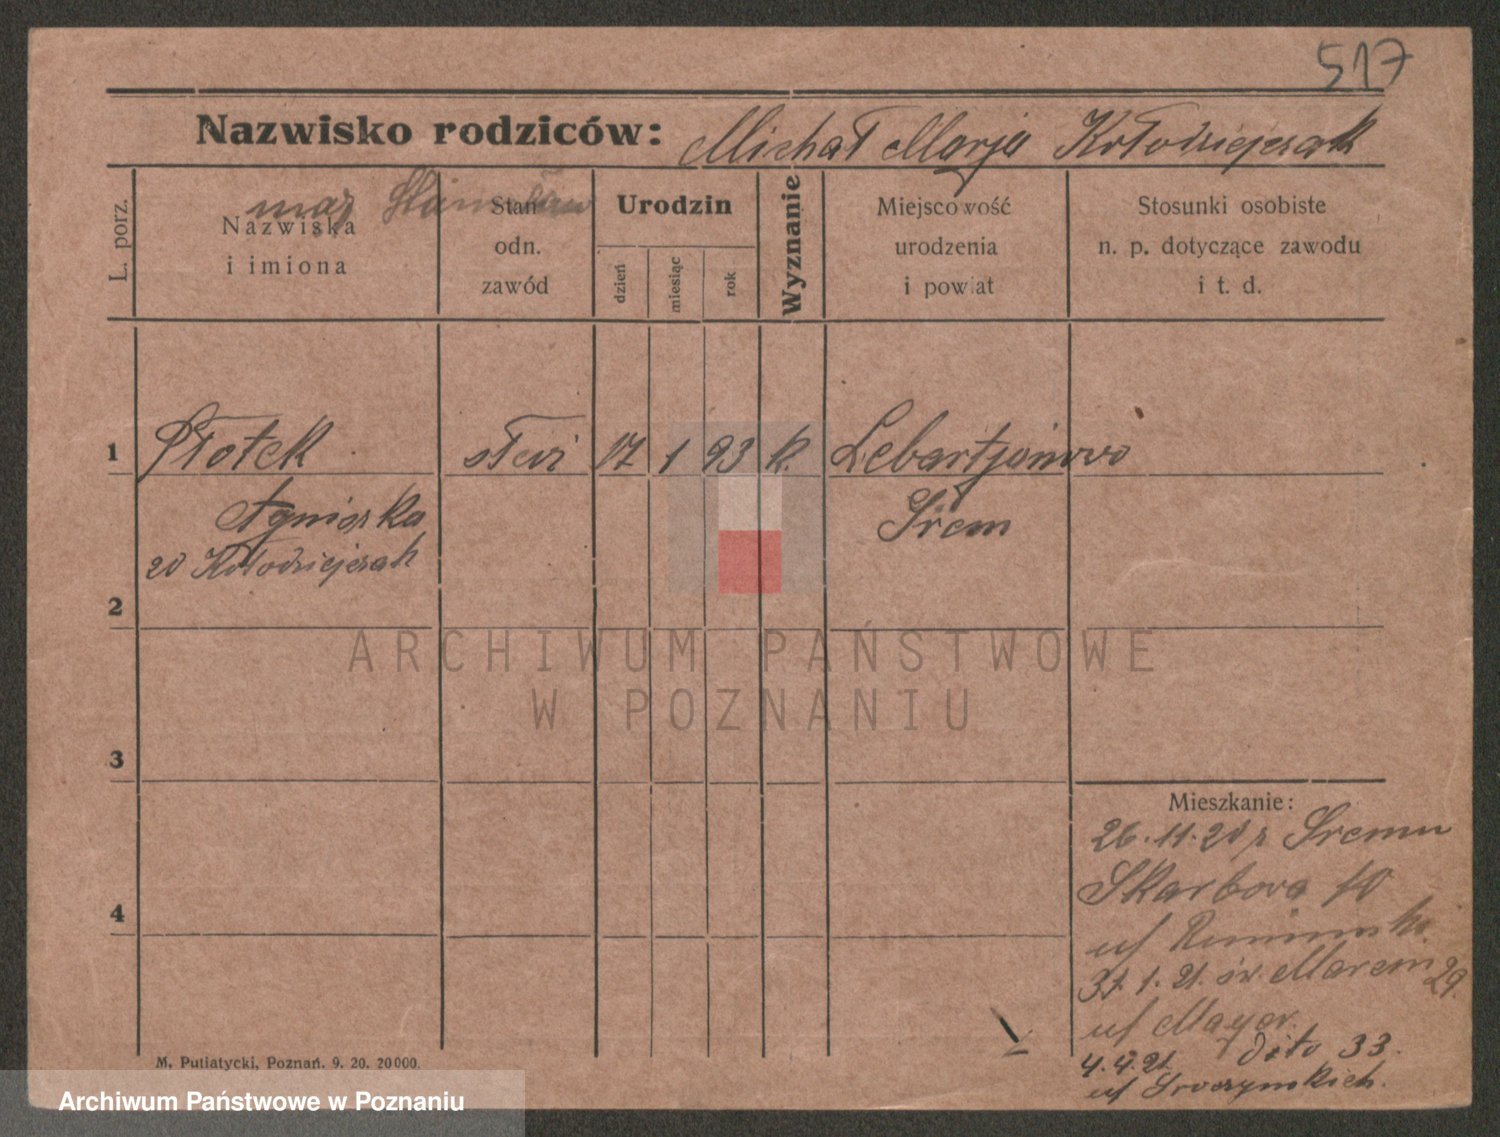 517
Nazwisko rodziców: Michał Marja Kołodziejczak
L. porz.
mąż Stanisław
Nazwiska
i imiona
Stan
odn.
zawód
Urodzin
dzień
miesiąc
rok
Wyznanie
Miejscowość
urodzenia
i powiat
Stosunki osobiste
n. p. dotyczące zawodu
i t. d.
1 Płotek 17 1 93 k.
Agnieszka
Śrem
Kołodziejczak
2
ARCHIWUM PAŃSTWOWE
W POZNANIU
3
Mieszkanie:
26.11.20 z Śremu
Skarbova 10
4
31.1.21. św. Marcin 29.
Mayer.
4.4.21. dito 33.
M. Putiatycki, Poznań. 9. 20. 20000.
Archiwum Państwowe w Poznaniu